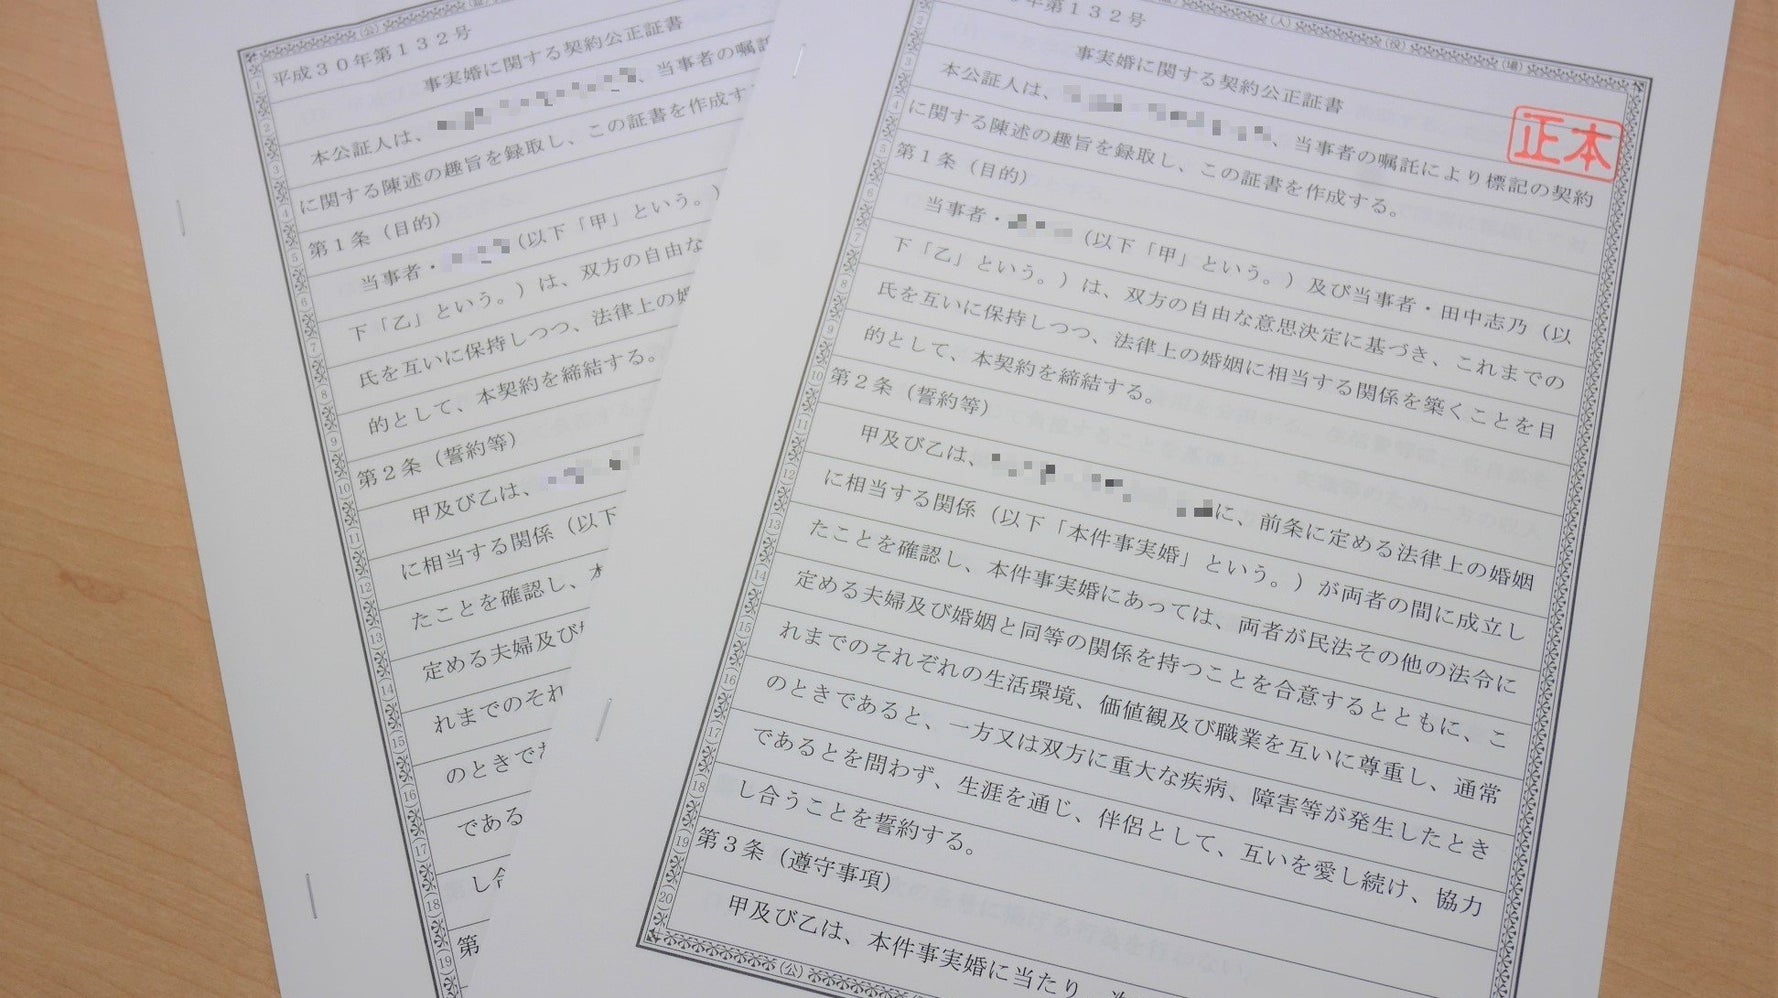 平成30年第132号
事実婚に関する契約公正証書
本公証人は、
、当事者の嘱託
に関する陳述の趣旨を録取し、この証書を作成す
第1条（目的）
当事者・
（以下「甲」という。）
下「乙」という。）は、双方の自由な
氏を互いに保持しつつ、法律上の婚
的として、本契約を締結する。
第2条（誓約等）
甲及び乙は、
に相当する関係（以下
たことを確認し、本
定める夫婦及び
れまでのそれ
のときで
である
し合
第
第132号
事実婚に関する契約公正証書
正本
本公証人は、
、当事者の嘱託により標記の契約
に関する陳述の趣旨を録取し、この証書を作成する。
第1条（目的）
当事者・
（以下「甲」という。）及び当事者・田中志乃（以
下「乙」という。）は、双方の自由な意思決定に基づき、これまでの
氏を互いに保持しつつ、法律上の婚姻に相当する関係を築くことを目
的として、本契約を締結する。
第2条（誓約等）
甲及び乙は、
に、前条に定める法律上の婚姻
に相当する関係（以下「本件事実婚」という。）が両者の間に成立し
たことを確認し、本件事実婚にあっては、両者が民法その他の法令に
定める夫婦及び婚姻と同等の関係を持つことを合意するとともに、こ
れまでのそれぞれの生活環境、価値観及び職業を互いに尊重し、通常
のときであると、一方又は双方に重大な疾病、障害等が発生したとき
であるとを問わず、生涯を通じ、伴侶として、互いを愛し続け、協力
し合うことを誓約する。
第3条（遵守事項）
甲及び乙は、本件事実婚に当たり、